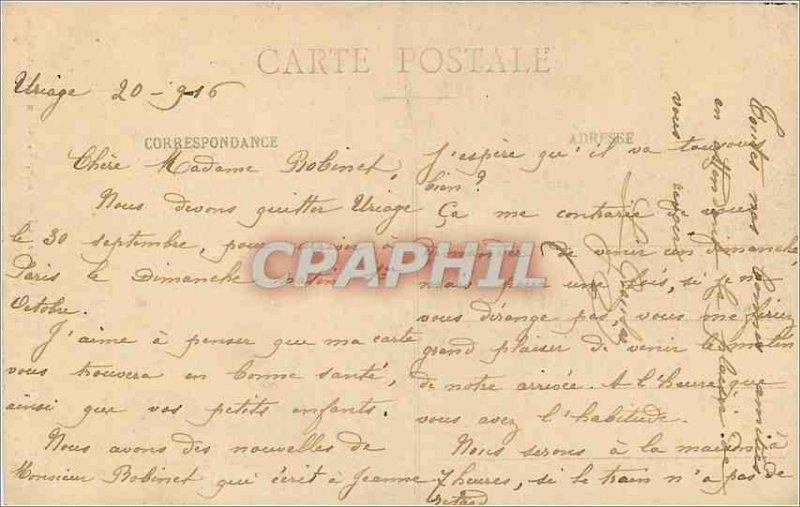 CARTE POSTALE
Uriage 20-9-16
CORRESPONDANCE
Chère Madame Bobinet,
Nous devons quitter Uriage
le 30 septembre, pour arriver à
Paris le Dimanche matin 1er
Octobre.
J'aime à penser que ma carte
vous trouvera en bonne santé,
ainsi que vos petits enfants.
Nous avons des nouvelles de
Monsieur Bobinet qui écrit à Jeanne
ADRESSE
J'espère qu'il va toujours
bien?
Ça me contrarie de vous
demander de venir un dimanche,
mais pour une fois, si je ne
vous dérange pas, vous me feriez
grand plaisir de venir le matin
de notre arrivée. A l'heure que
vous avez l'habitude.
Nous serons à la maison à
7 heures, si le train n'a pas de
retard
Toutes mes bonnes amitiés
en attendant le plaisir de
vous revoir
CPAPHIL